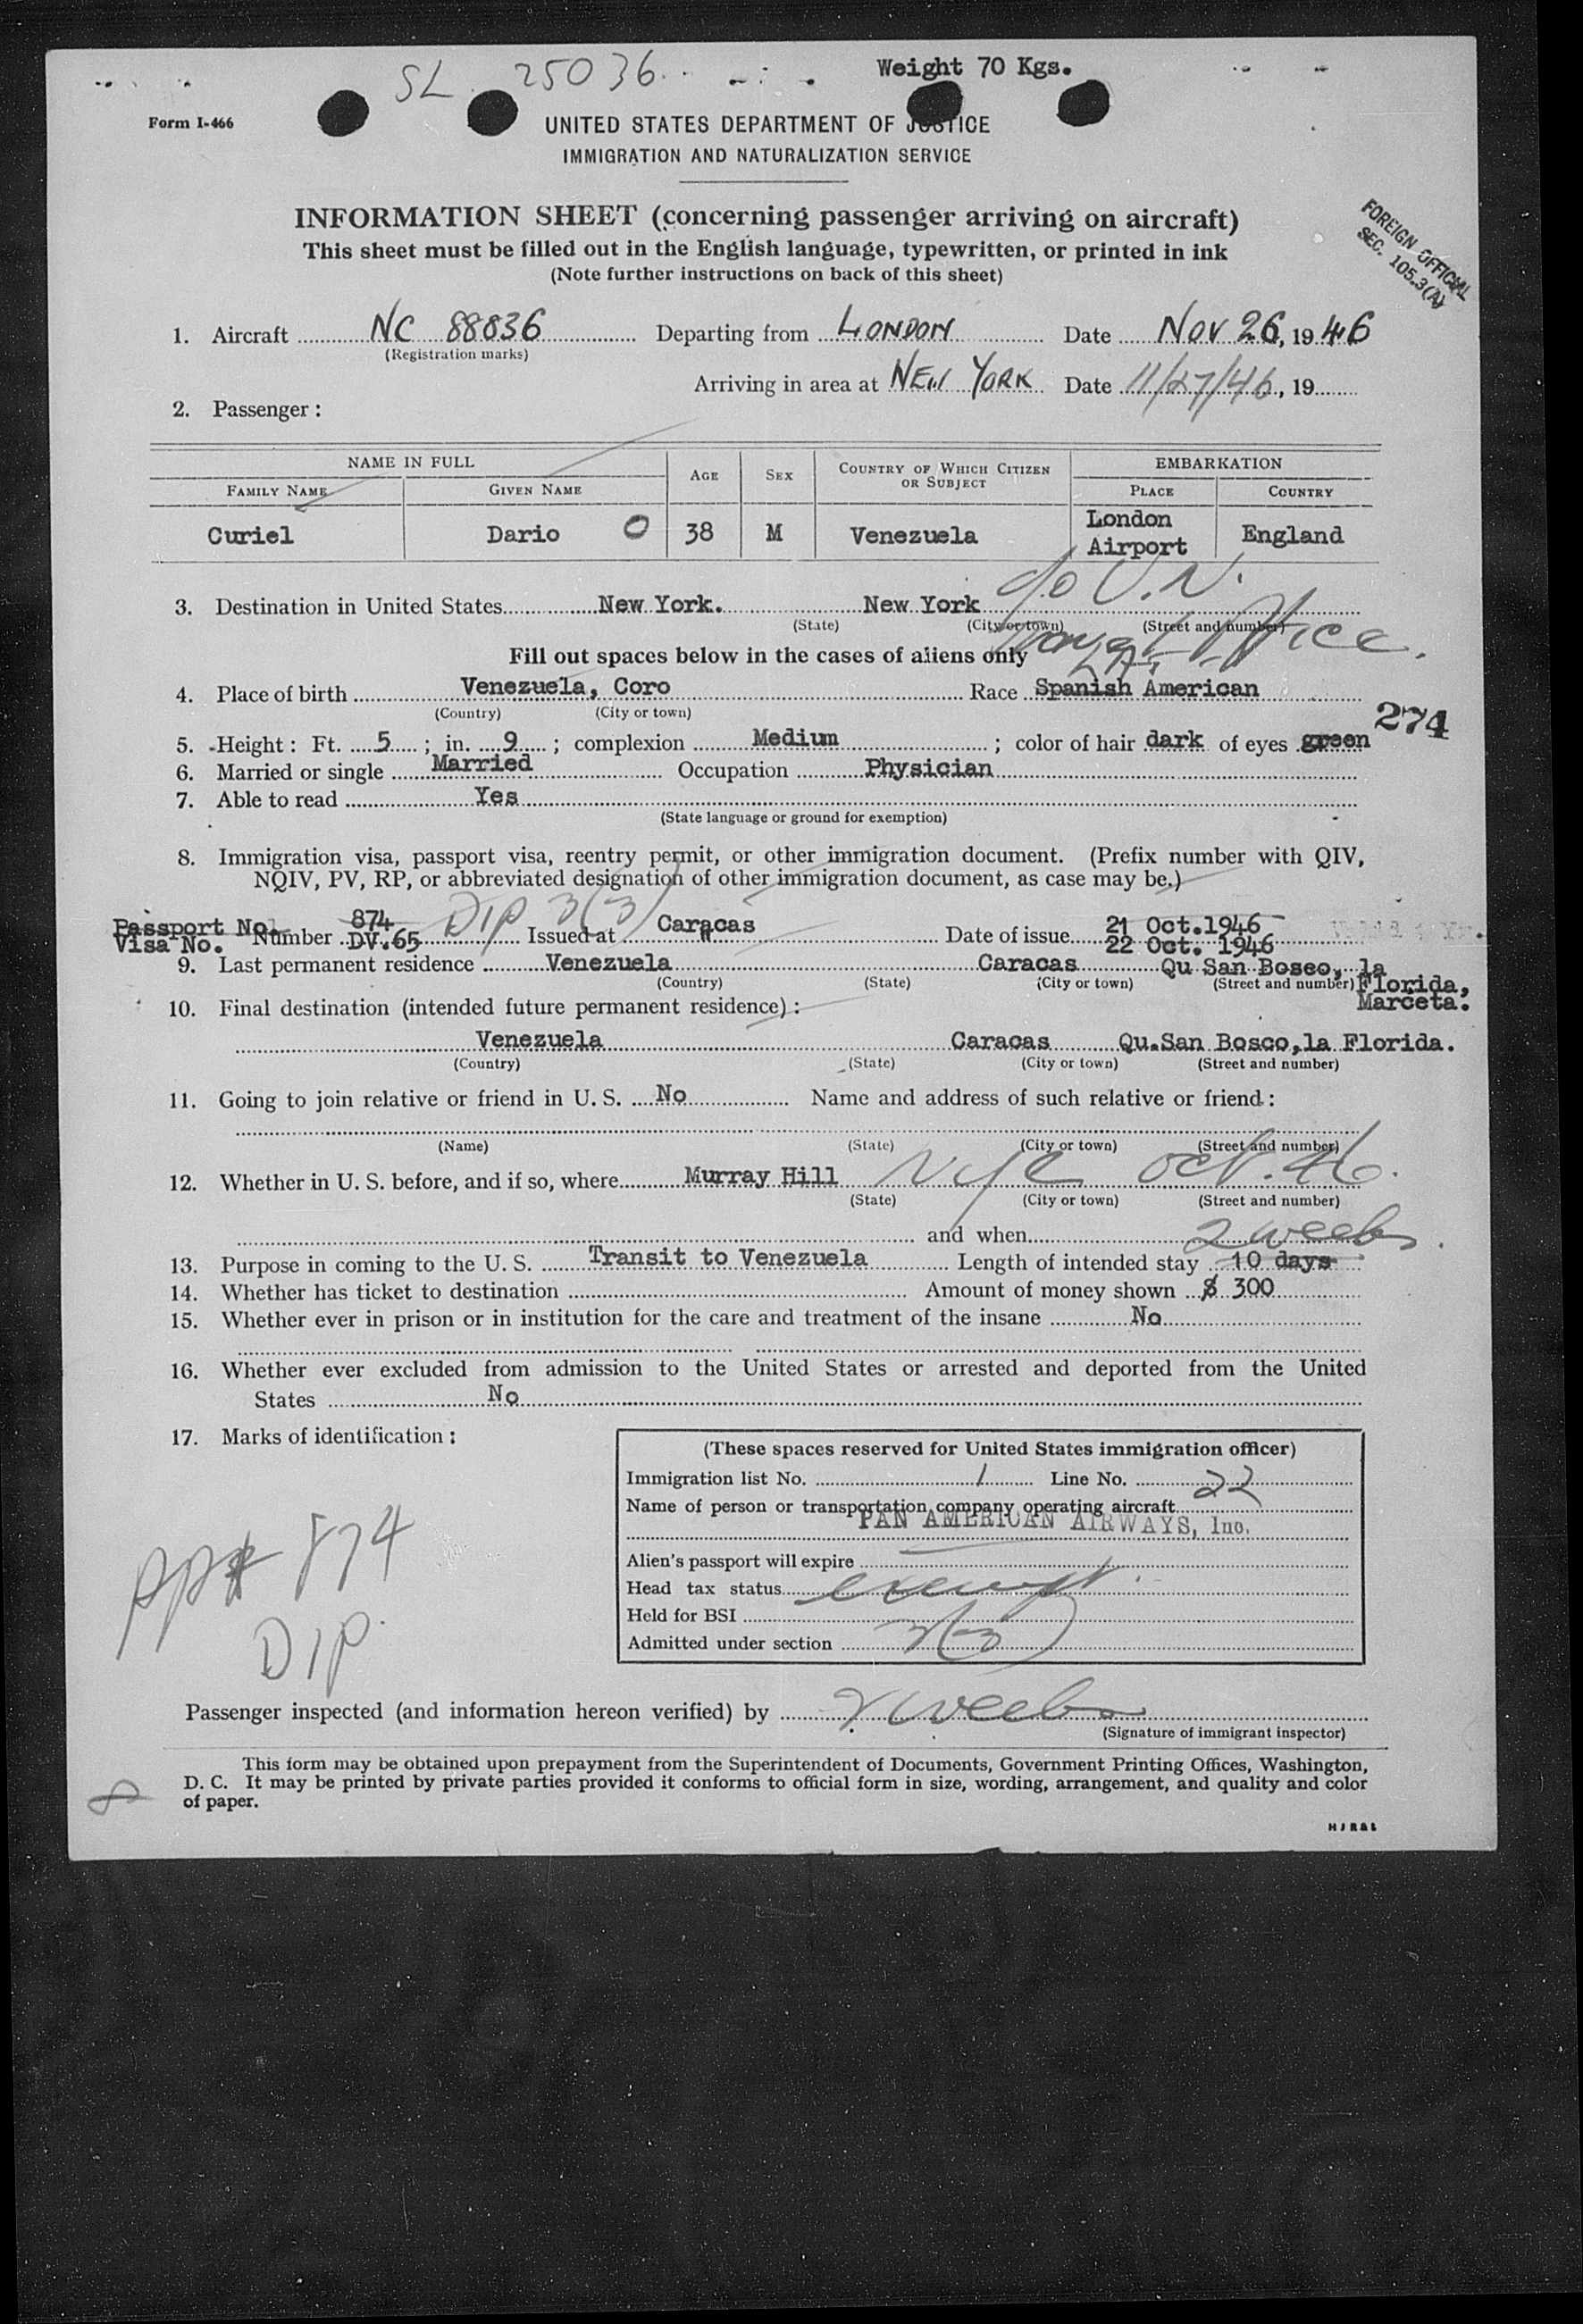 SL 25036 Weight 70 Kgs.
Form I-466
UNITED STATES DEPARTMENT OF JUSTICE
IMMIGRATION AND NATURALIZATION SERVICE
INFORMATION SHEET (concerning passenger arriving on aircraft)
This sheet must be filled out in the English language, typewritten, or printed in ink
(Note further instructions on back of this sheet)
FOREIGN OFFICIAL
SEC. 105.3(A)
1. Aircraft NC 88836 Departing from LONDON Date NOV 26, 1946
(Registration marks)
Arriving in area at NEW YORK Date 11/27/46, 19
2. Passenger:
NAME IN FULL AGE SEX COUNTRY OF WHICH CITIZEN OR SUBJECT EMBARKATION
FAMILY NAME GIVEN NAME PLACE COUNTRY
Curiel Dario 0 38 M Venezuela London Airport England
c/o U.N.
3. Destination in United States New York. New York
(State) (City or town) (Street and number)
Office.
Fill out spaces below in the cases of aliens only
4. Place of birth Venezuela, Coro Race Spanish American
(Country) (City or town)
274
5. Height: Ft. 5; in. 9; complexion Medium; color of hair dark of eyes green
6. Married or single Married Occupation Physician
7. Able to read Yes
(State language or ground for exemption)
8. Immigration visa, passport visa, reentry permit, or other immigration document. (Prefix number with QIV,
NQIV, PV, RP, or abbreviated designation of other immigration document, as case may be.)
DIP 3(3)
Passport No. 874 Caracas 21 Oct.1946
Visa No. Number DV.65 Issued at " Date of issue 22 Oct. 1946
9. Last permanent residence Venezuela Caracas Qu San Bosco, la
(Country) (State) (City or town) (Street and number) Florida,
Marceta.
10. Final destination (intended future permanent residence):
Venezuela Caracas Qu.San Bosco,la Florida.
(Country) (State) (City or town) (Street and number)
11. Going to join relative or friend in U. S. No Name and address of such relative or friend:
(Name) (State) (City or town) (Street and number)
12. Whether in U. S. before, and if so, where Murray Hill NYC Oct. 46.
(State) (City or town) (Street and number)
and when
2 weeks
13. Purpose in coming to the U. S. Transit to Venezuela Length of intended stay 10 days
14. Whether has ticket to destination Amount of money shown $ 300
15. Whether ever in prison or in institution for the care and treatment of the insane No
16. Whether ever excluded from admission to the United States or arrested and deported from the United
States No
17. Marks of identification:
(These spaces reserved for United States immigration officer)
Immigration list No. 1 Line No. 22
Name of person or transportation company operating aircraft
PAN AMERICAN AIRWAYS, Inc.
Alien's passport will expire
Head tax status exempt.
Held for BSI
Admitted under section 3(3)
PP# 874
DIP.
Passenger inspected (and information hereon verified) by 2 weeks
(Signature of immigrant inspector)
This form may be obtained upon prepayment from the Superintendent of Documents, Government Printing Offices, Washington,
D. C. It may be printed by private parties provided it conforms to official form in size, wording, arrangement, and quality and color
of paper.
8
H J R & L